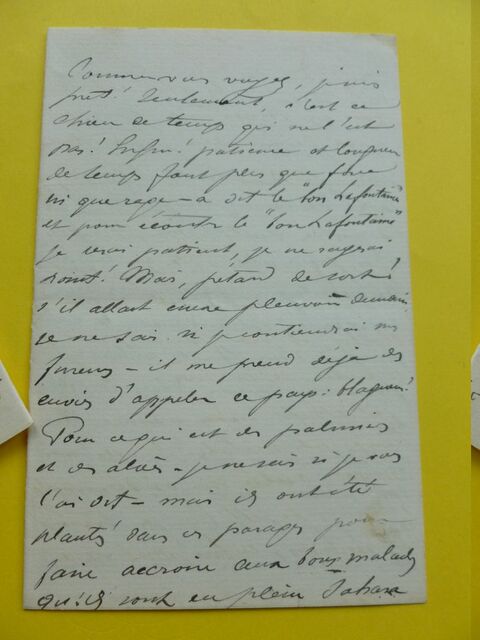 Comme vous voyez, je suis
prêt! Seulement, c'est ce
chien de temps qui ne l'est
pas! Enfin! patience et longueur
de temps font plus que force
ni que rage - a dit le "bon Lafontaine"
et pour écouter le "bon Lafontaine"
je serai patient, je ne ragerai
point! Mais, pétard de sort!
s'il allait encore pleuvoir demain
je ne sais si je contiendrai mes
fureurs - il me prend déjà des
envies d'appeler ce pays: blagueur!
Pour ce qui est des palmiers
et des aloès - je ne sais si je vous
l'ai dit - mais ils ont été
plantés dans ces parages pour
faire accroire aux bons malades
qu'ils sont en plein Sahara